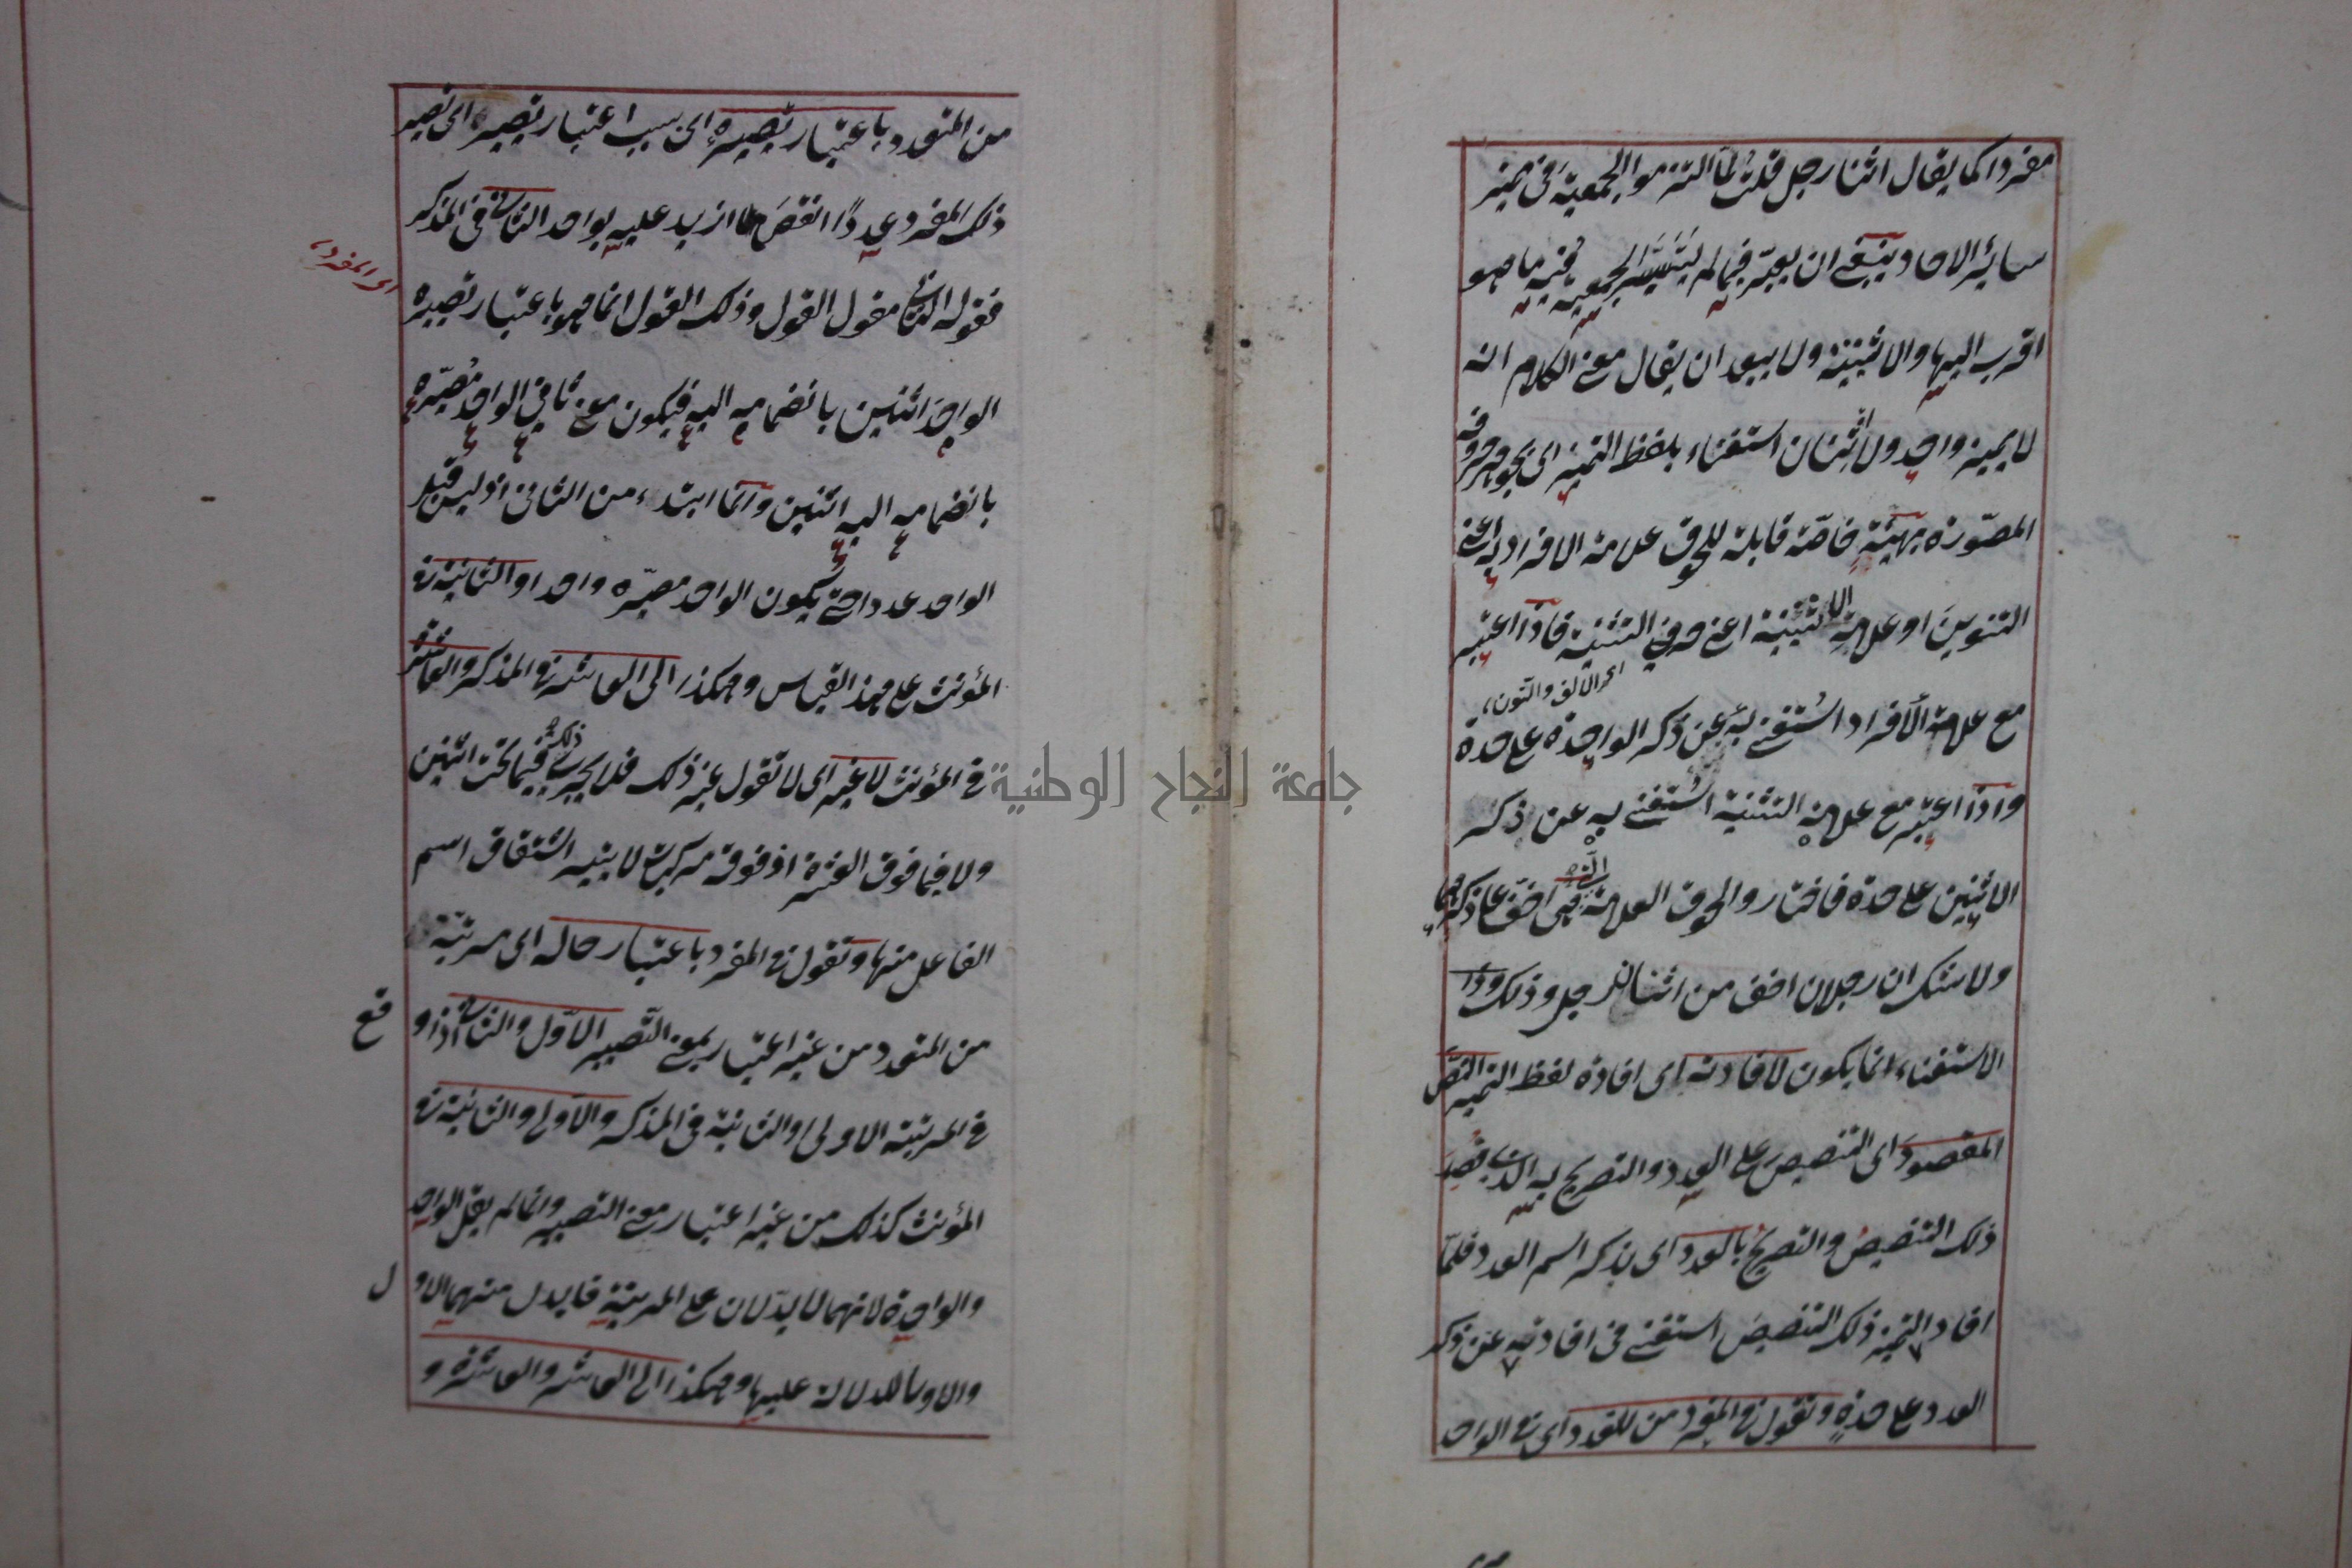 مفردا كما يقال اثنا رجل قلت لما التزموا الجمعية فى مميز
سائر الاحاد ينبغى ان يعتبر فيما لم يتيسر الجمعية فيه ما هو
اقرب اليها والاثنينية ولا يبعد ان يقال معنى الكلام انه
لا يميز واحد ولا اثنان استغناء بلفظ التميز اى بجوهر حروفه
المصورة بهيئة خاصة قابلة للحوق علامة الافراد اعنى
التنوين او علامة الاثنينية اعنى حرفى التثنية فاذا اعتبر
اى الالف والنون
مع علامة الافراد استغنى به عن ذكر الواحدة على حدة
واذا اعتبر مع علامة التثنية استغنى به عن ذكر
الاثنين على حدة فاختار والحوق العلامة التى هى اخف عن ذكرهما
ولا شك ان رجلان اخف من اثنا رجل وذلك
الاستغناء انما يكون لافادته اى افادة لفظ التميز النص
المقصود اى التنصيص على العدد والتصريح به الذى قصد
ذلك التنصيص والتصريح بالعدد اى بذكر اسم العدد فلما
افاد التميز ذلك التنصيص استغنى فى افادته عن ذكر
العدد على حدة وتقول فى المفرد من المتعدد اى فى الواحد
من المتعدد باعتبار تصييره اى بسبب اعتبار تصييره اى تصيير
ذلك المفرد عددا انقص مما ازيد عليه بواحد الثانى فى المذكر
اى المفرد
فقوله الثانى مقول القول وذلك القول انما هو باعتبار تصييره
الواحد اثنين بانضمامه اليه فيكون معنى ثانى الواحد مصيره
بانضمامه اليه اثنين وانما ابتدء من الثانى اذ ليس قبل
الواحد عدد حتى يكون الواحد مصيره واحدا والثانية فى
المؤنث على هذ القياس وهكذا الى العاشر فى المذكر والعاشرة
فى المؤنث لا غير اى لا تقول غير ذلك فلا يجرى ذلك فيما تحت اثنين
ولا فيما فوق العشرة اذ فوقه مركبات لا يتيسر اشتقاق اسم
الفاعل منها وتقول فى المفرد باعتبار حاله اى مرتبته
من المتعدد من غير اعتبار معنى التصيير الاول والثانى اذا و
قع
فى المرتبة الاولى والثانية فى المذكر والاولى والثانية فى
المؤنث كذلك من غير اعتبار معنى التصيير وانما لم يقل الواحد
والواحدة لانهما لا يدلان على المرتبة فابدل منهما الاو
ل
والاولى للدلالة عليها وهكذا الى العاشر والعاشرة و
جامعة النجاح الوطنية